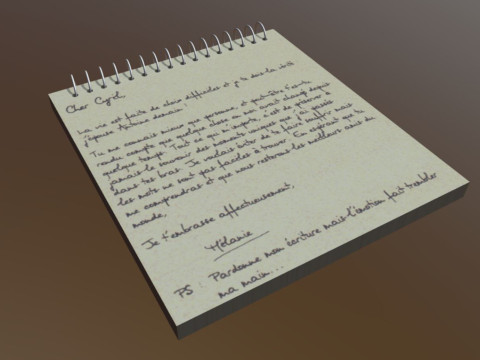 Cher Cyril,
La vie est faite de choix difficiles et je te dois la vérité
j'épouse Antoine demain !
Tu me connais mieux que personne, et peut-être t'es-tu
rendu compte que quelque chose en moi avait changé depuis
quelque temps. Tout ce qui m'importe, c'est de préserver à
jamais le souvenir des moments uniques que j'ai passés
dans tes bras. Je voulais éviter de te faire souffrir mais
les mots ne sont pas faciles à trouver. En espérant que tu
me comprendras et que nous resterons les meilleurs amis du
monde,
Je t'embrasse affectueusement,
Mélanie
PS : Pardonne mon écriture mais l'émotion fait trembler
ma main...